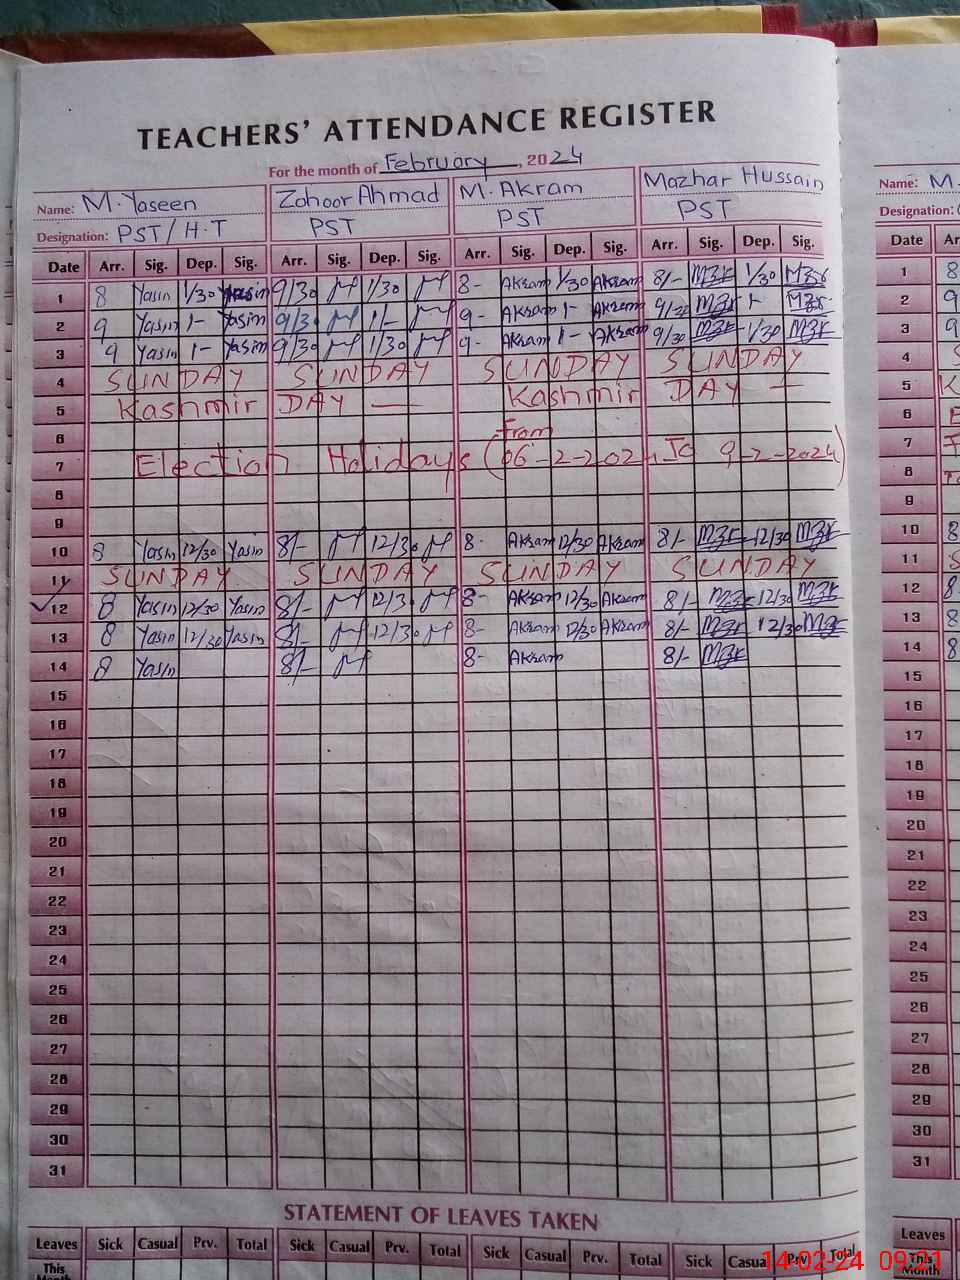 TEACHERS' ATTENDANCE REGISTER
For the month of February, 2024
Name: M. Yaseen Zohoor Ahmad M. Akram Mazhar Hussain Name: M.
Designation: PST/H.T PST PST PST Designation:
Date Arr. Sig. Dep. Sig. Arr. Sig. Dep. Sig. Arr. Sig. Dep. Sig. Arr. Sig. Dep. Sig. Date Ar
1 8 Yasin 1/30 Yasin 9/30 1/30 8- Akram 1/30 Akram 8/- Mzr 1/30 Mzr 1 8
2 9 Yasin 1- Yasin 9/30 1/- 9- Akram 1- Akram 9/30 Mzr 1- Mzr 2 9
3 9 Yasin 1- Yasin 9/30 1/30 9- Akram 1- Akram 9/30 Mzr 1/30 Mzr 3 9
4 SUNDAY SUNDAY SUNDAY SUNDAY 4 S
5 Kashmir DAY — Kashmir DAY — 5 K
6 From 6
7 Election Holidays (06-2-2024 To 9-2-2024) 7
8 8
9 9
10 8 Yasin 12/30 Yasin 8/- 12/30 8- Akram 12/30 Akram 8/- Mzr 12/30 Mzr 10 8
11 SUNDAY SUNDAY SUNDAY SUNDAY 11 S
12 8 Yasin 12/30 Yasin 8/- 12/3. 8- Akram 12/30 Akram 8/- Mzr 12/30 Mzr 12 8
13 8 Yasin 12/30 Yasin 8/- 12/30 8- Akram 12/30 Akram 8/- Mzr 12/30 Mzr 13 8
14 8 Yasin 8/- 8- Akram 8/- Mzr 14 8
15 15
16 16
17 17
18 18
19 19
20 20
21 21
22 22
23 23
24 24
25 25
26 26
27 27
28 28
29 29
30 30
31 31
STATEMENT OF LEAVES TAKEN
Leaves Sick Casual Prv. Total Sick Casual Prv. Total Sick Casual Prv. Total Sick Casual Prv. Total Leaves
This Month This Month
14-02-24 09:21